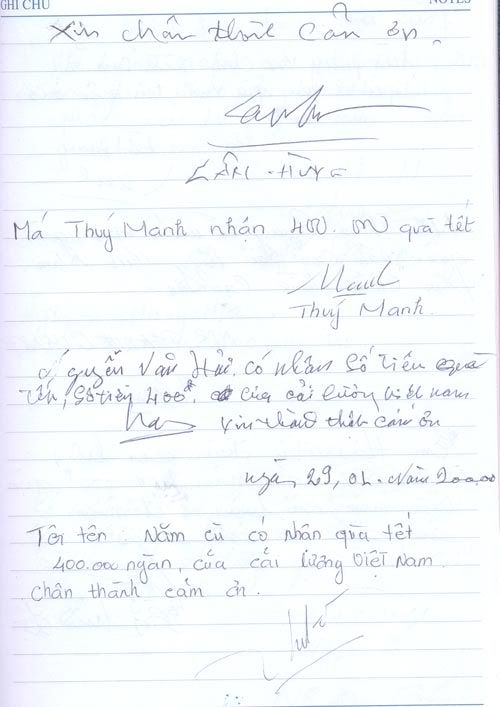 GHI CHÚ NOTES
Xin chân thành Cẩn ơn.
LÂM-HÙNG
Má Thuý Manh nhận 400.000 quà tết
Thuý Manh.
Nguyễn Văn Hải. có nhận Số tiền quà
tết, Số tiền 400đ, của cải lương việt nam
xin thành thật cảm ơn
ngày 29, 01. năm
Tôi tên Năm cù có nhân qùa tết
400.000 ngàn, của cải lương Việt Nam.
chân thành cảm ơn.